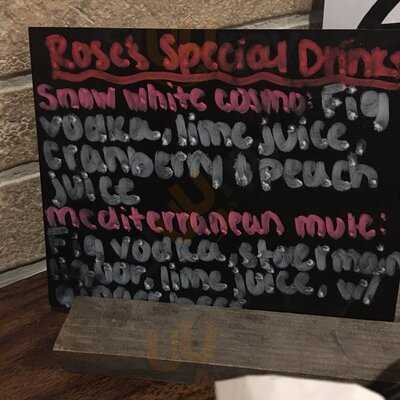 Rose's Special Drinks
Snow White Cosmo: Fig
vodka, lime juice,
cranberry & peach
juice
Mediterranean mule:
Fig vodka,
lime juice, w/